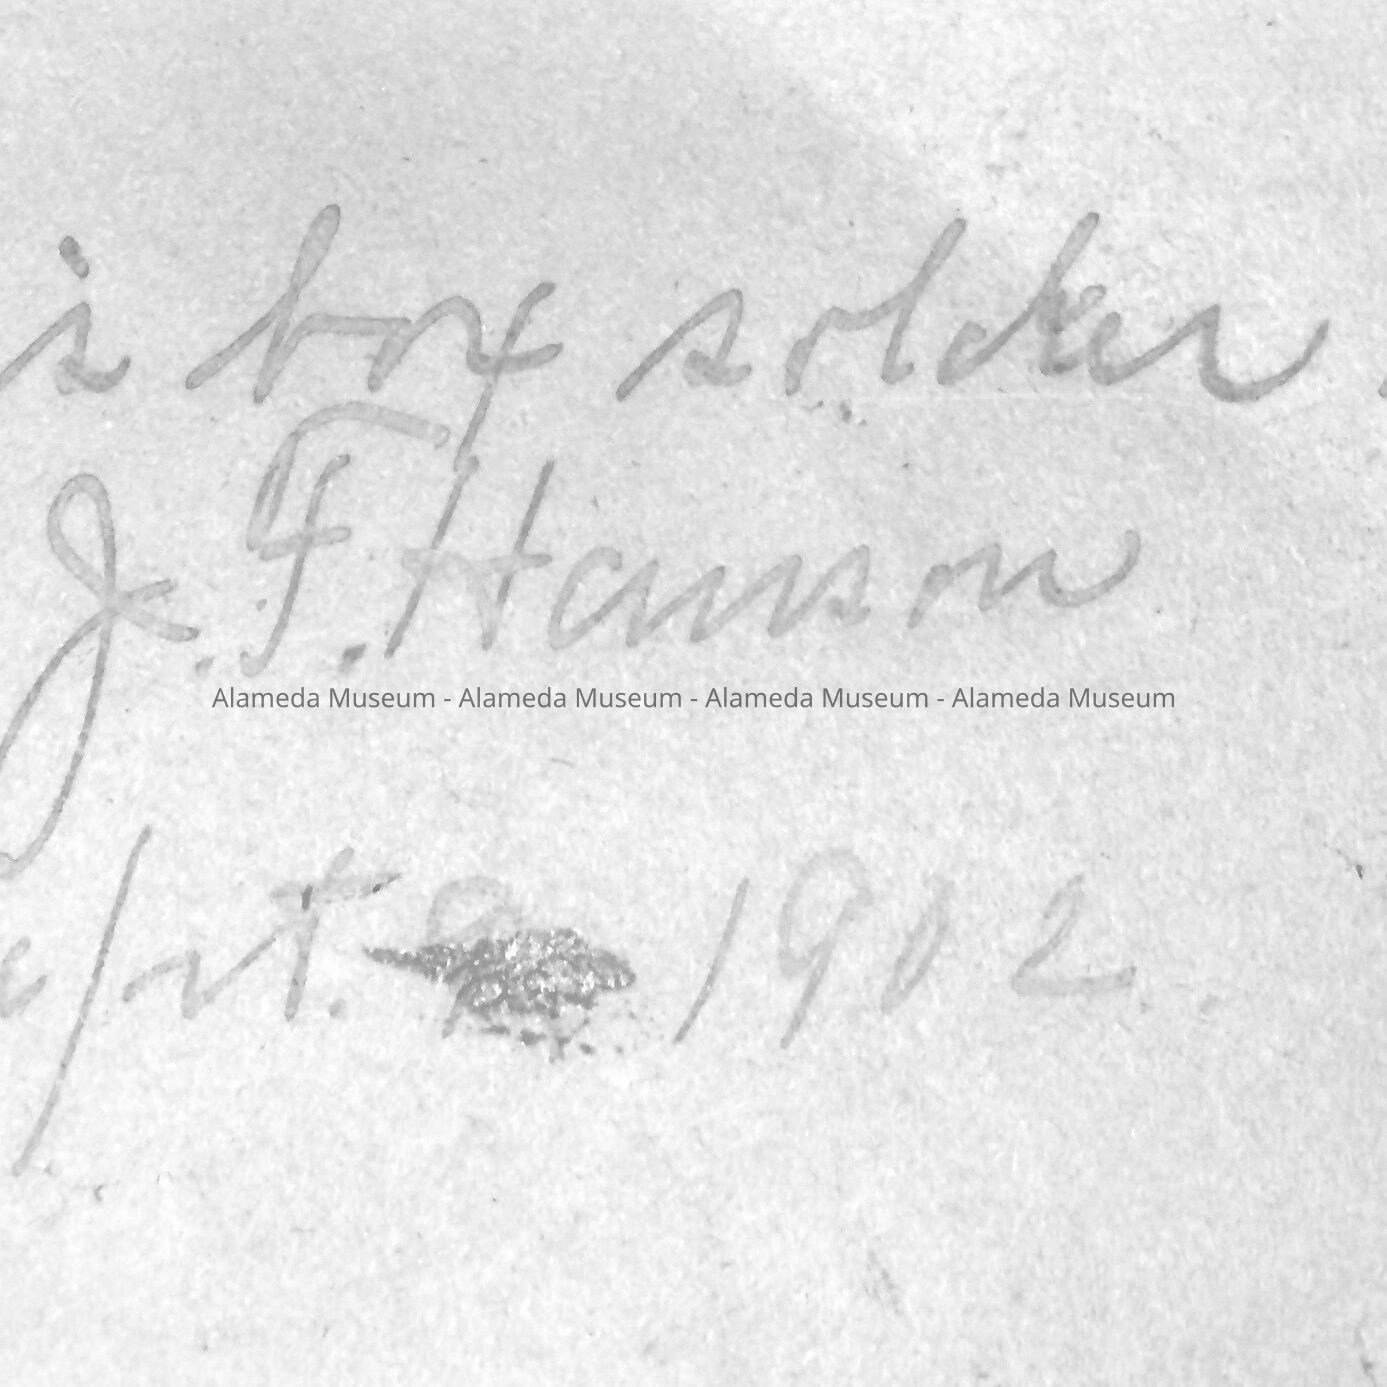 is box solder
J. F. Hanson
Alameda Museum - Alameda Museum - Alameda Museum - Alameda Museum
ept. 1902